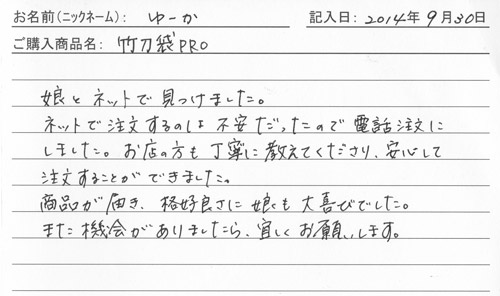 お名前(ニックネーム): ゆーか 記入日: 2014年9月30日
ご購入商品名: 竹刀袋PRO
娘とネットで見つけました。
ネットで注文するのは不安だったので電話注文に
しました。お店の方も丁寧に教えてくださり、安心して
注文することができました。
商品が届き、格好良さに娘も大喜びでした。
また機会がありましたら、宜しくお願いします。